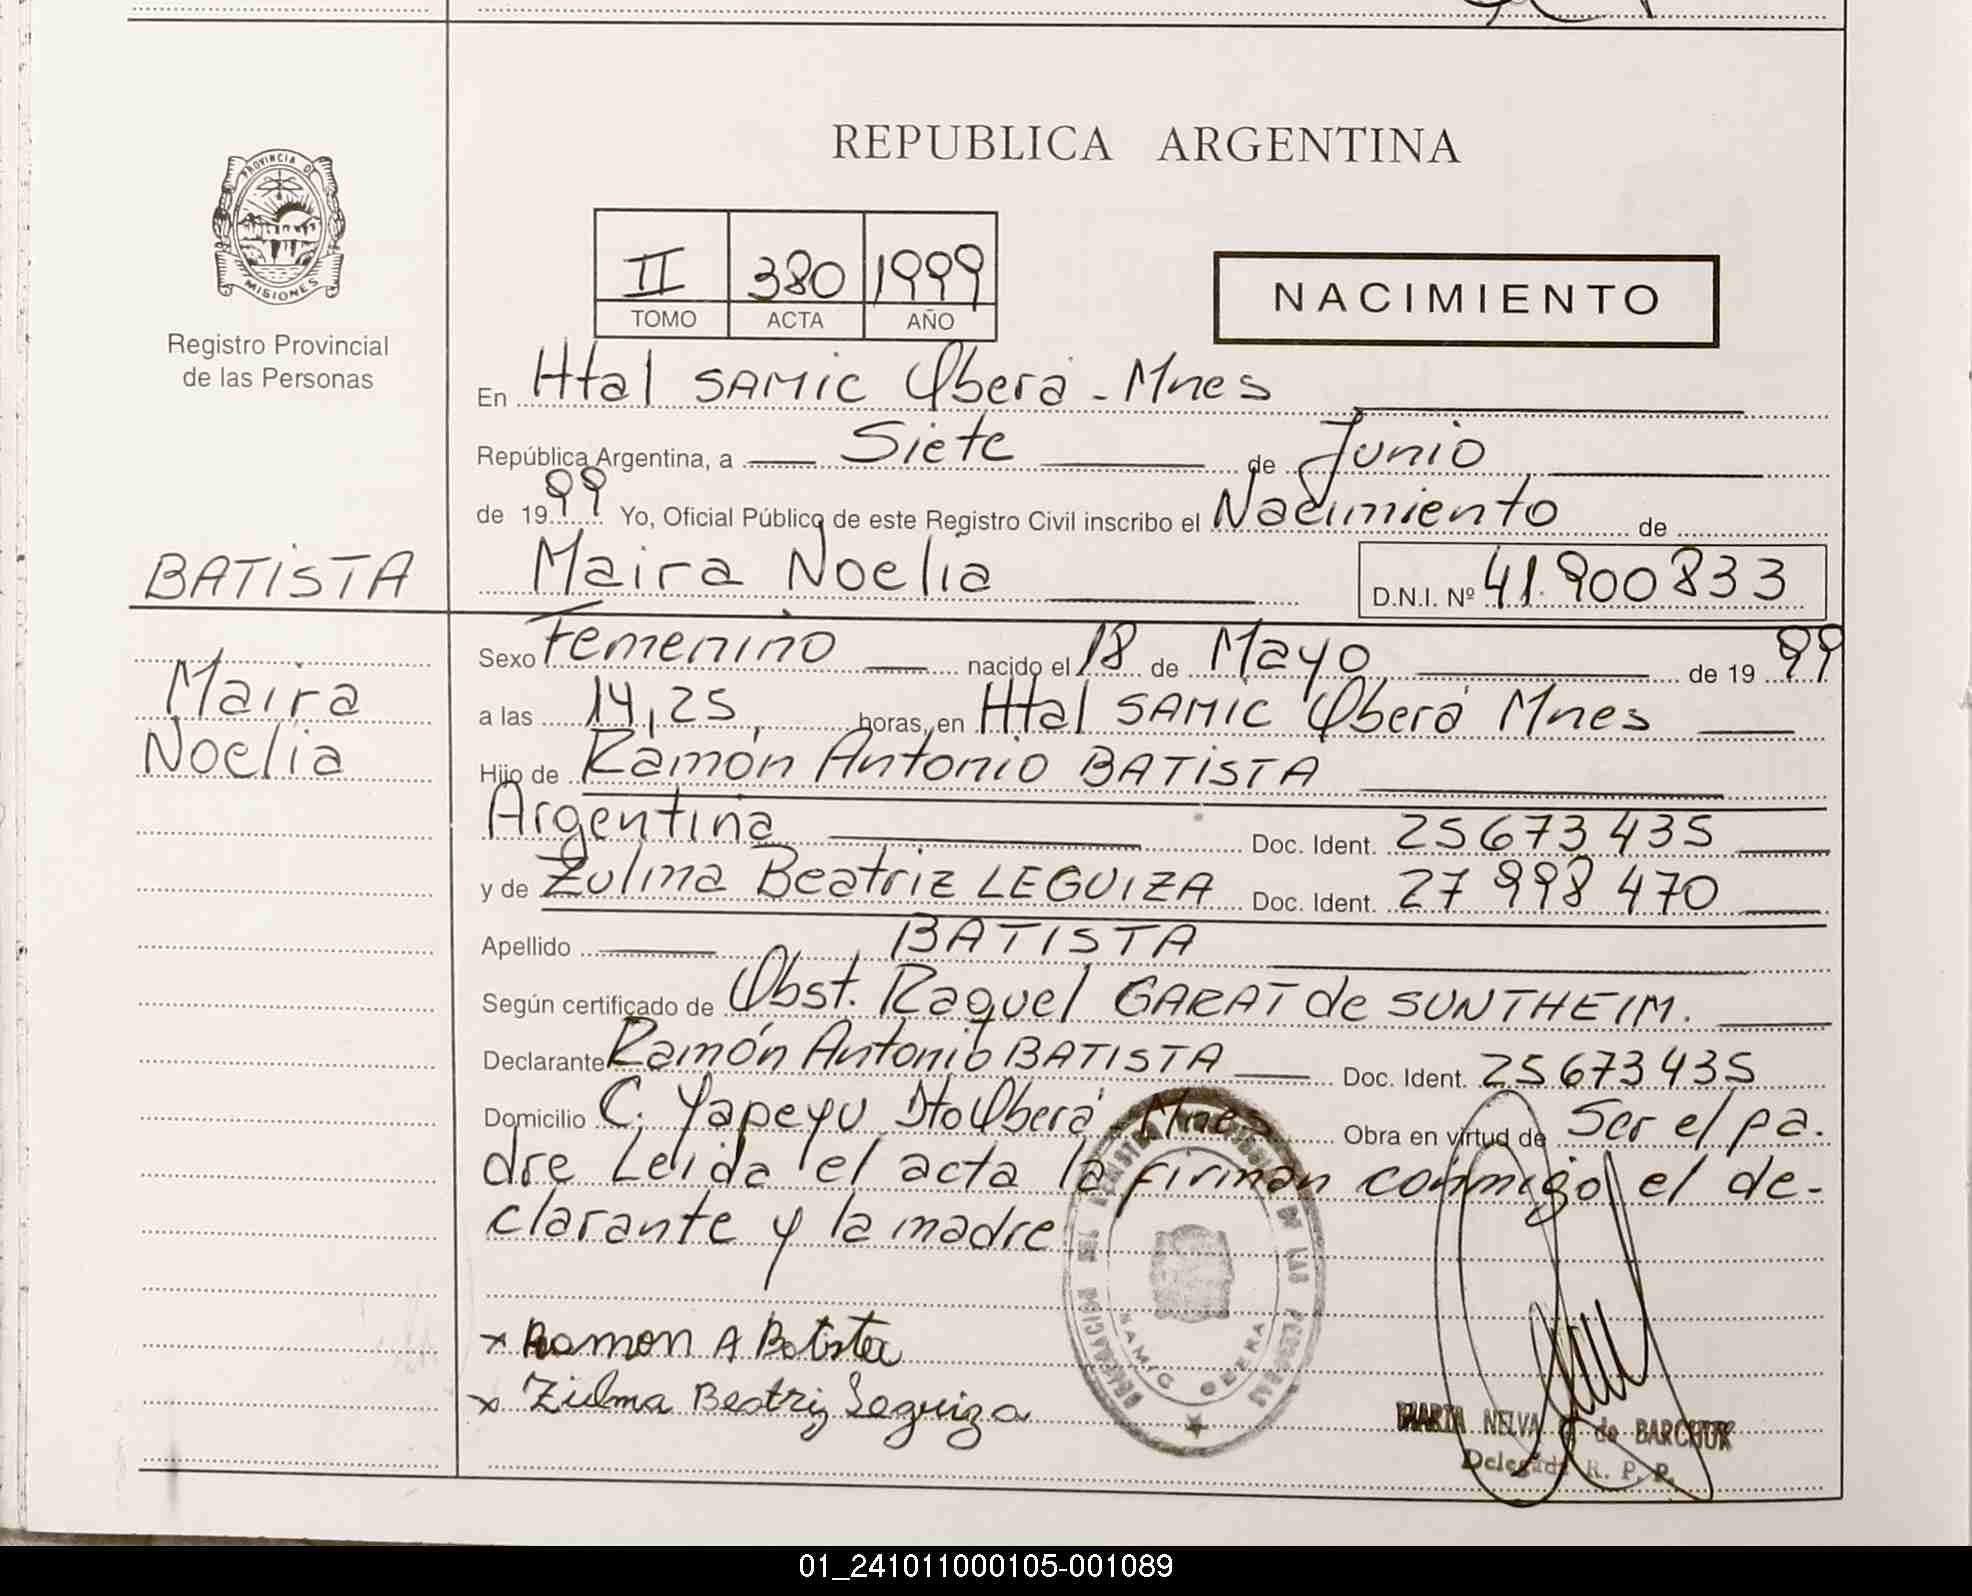 REPUBLICA ARGENTINA
PROVINCIA DE
MISIONES
Registro Provincial
de las Personas
II 380 1999
TOMO ACTA AÑO
NACIMIENTO
En Htal SAMIC Oberá - Mnes
República Argentina, a Siete de Junio
de 1999 Yo, Oficial Público de este Registro Civil inscribo el Nacimiento de
BATISTA
Maira Noelia D.N.I. Nº 41.900833
Maira
Noelia
Sexo Femenino nacido el 18 de Mayo de 1999
a las 14,25 horas, en Htal SAMIC Oberá Mnes
Hijo de Ramón Antonio BATISTA
Argentina Doc. Ident. 25673435
y de Zulma Beatriz LEGUIZA Doc. Ident. 27 998 470
Apellido BATISTA
Según certificado de Obst. Raquel GARAT de SUNTHEIM.
Declarante Ramón Antonio BATISTA Doc. Ident. 25673435
Domicilio C. Yapeyu Dto Oberá - Mnes Obra en virtud de Ser el pa.
dre Leida el acta la firman conmigo el de-
clarante y la madre
x Ramon A Batista
x Zulma Beatriz Leguiza
SAMIC OBERA
MARIA NELVA de BARCHUK
Delegada R. P. P.
01_241011000105-001089